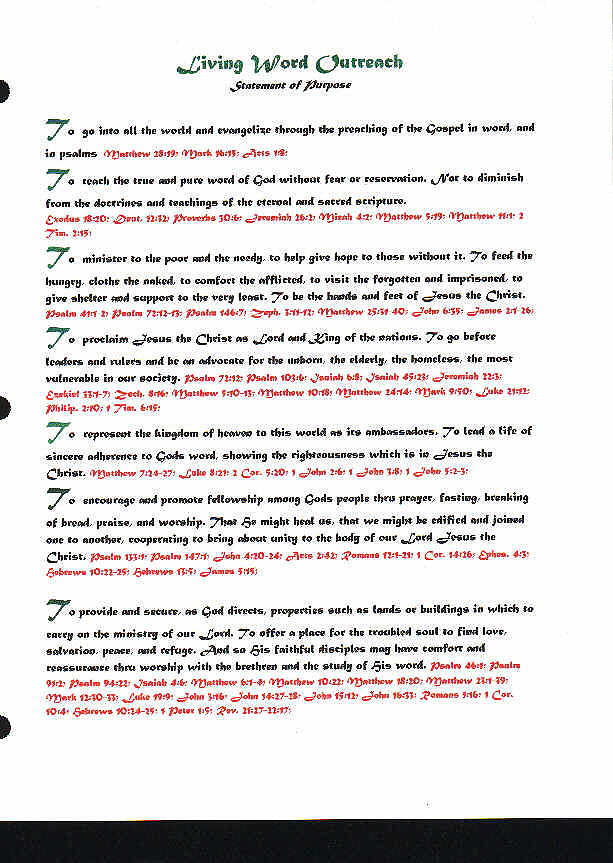 Living Word Outreach
Statement of Purpose
To go into all the world and evangelize through the preaching of the Gospel in word, and
in psalms Matthew 28:19; Mark 16:15; Acts 1:8;
To teach the true and pure word of God without fear or reservation. Not to diminish
from the doctrines and teachings of the eternal and sacred scripture.
Exodus 18:20; Deut. 12:32; Proverbs 30:6; Jeremiah 26:2; Micah 4:2; Matthew 5:19; Matthew 11:1; 2
Tim. 2:15;
To minister to the poor and the needy, to help give hope to those without it. To feed the
hungry, clothe the naked, to comfort the afflicted, to visit the forgotten and imprisoned, to
give shelter and support to the very least. To be the hands and feet of Jesus the Christ.
Psalm 41:1-2; Psalm 72:12-13; Psalm 146:7; Zeph. 3:11-12; Matthew 25:31-40; John 6:35; James 2:1-26;
To proclaim Jesus the Christ as Lord and King of the nations. To go before
leaders and rulers and be an advocate for the unborn, the elderly, the homeless, the most
vulnerable in our society. Psalm 72:12; Psalm 103:6; Isaiah 6:8; Isaiah 45:23; Jeremiah 22:3;
Ezekiel 33:1-7; Zech. 8:16; Matthew 5:10-13; Matthew 10:18; Matthew 24:14; Mark 9:50; Luke 21:12;
Philip. 2:10; 1 Tim. 6:15;
To represent the kingdom of heaven to this world as its ambassadors. To lead a life of
sincere adherence to Gods word, showing the righteousness which is in Jesus the
Christ. Matthew 7:24-27; Luke 8:21; 2 Cor. 5:20; 1 John 2:6; 1 John 3:8; 1 John 5:2-3;
To encourage and promote fellowship among Gods people thru prayer, fasting, breaking
of bread, praise, and worship. That He might heal us, that we might be edified and joined
one to another, cooperating to bring about unity to the body of our Lord Jesus the
Christ. Psalm 133:1; Psalm 147:1; John 4:20-24; Acts 2:42; Romans 12:1-21; 1 Cor. 14:26; Ephes. 4:3;
Hebrews 10:22-25; Hebrews 13:5; James 5:15;
To provide and secure, as God directs, properties such as lands or buildings in which to
carry on the ministry of our Lord. To offer a place for the troubled soul to find love,
salvation, peace, and refuge. And so His faithful disciples may have comfort and
reassurance thru worship with the bretheen and the study of His word. Psalm 46:1; Psalm
91:2; Psalm 94:22; Isaiah 4:6; Matthew 6:1-4; Matthew 10:22; Matthew 18:20; Matthew 23:1-39;
Mark 12:30-33; Luke 19:9; John 3:16; John 14:27-28; John 15:12; John 16:33; Romans 5:16; 1 Cor.
10:4; Hebrews 10:24-25; 1 Peter 1:5; Rev. 21:27-22:17;